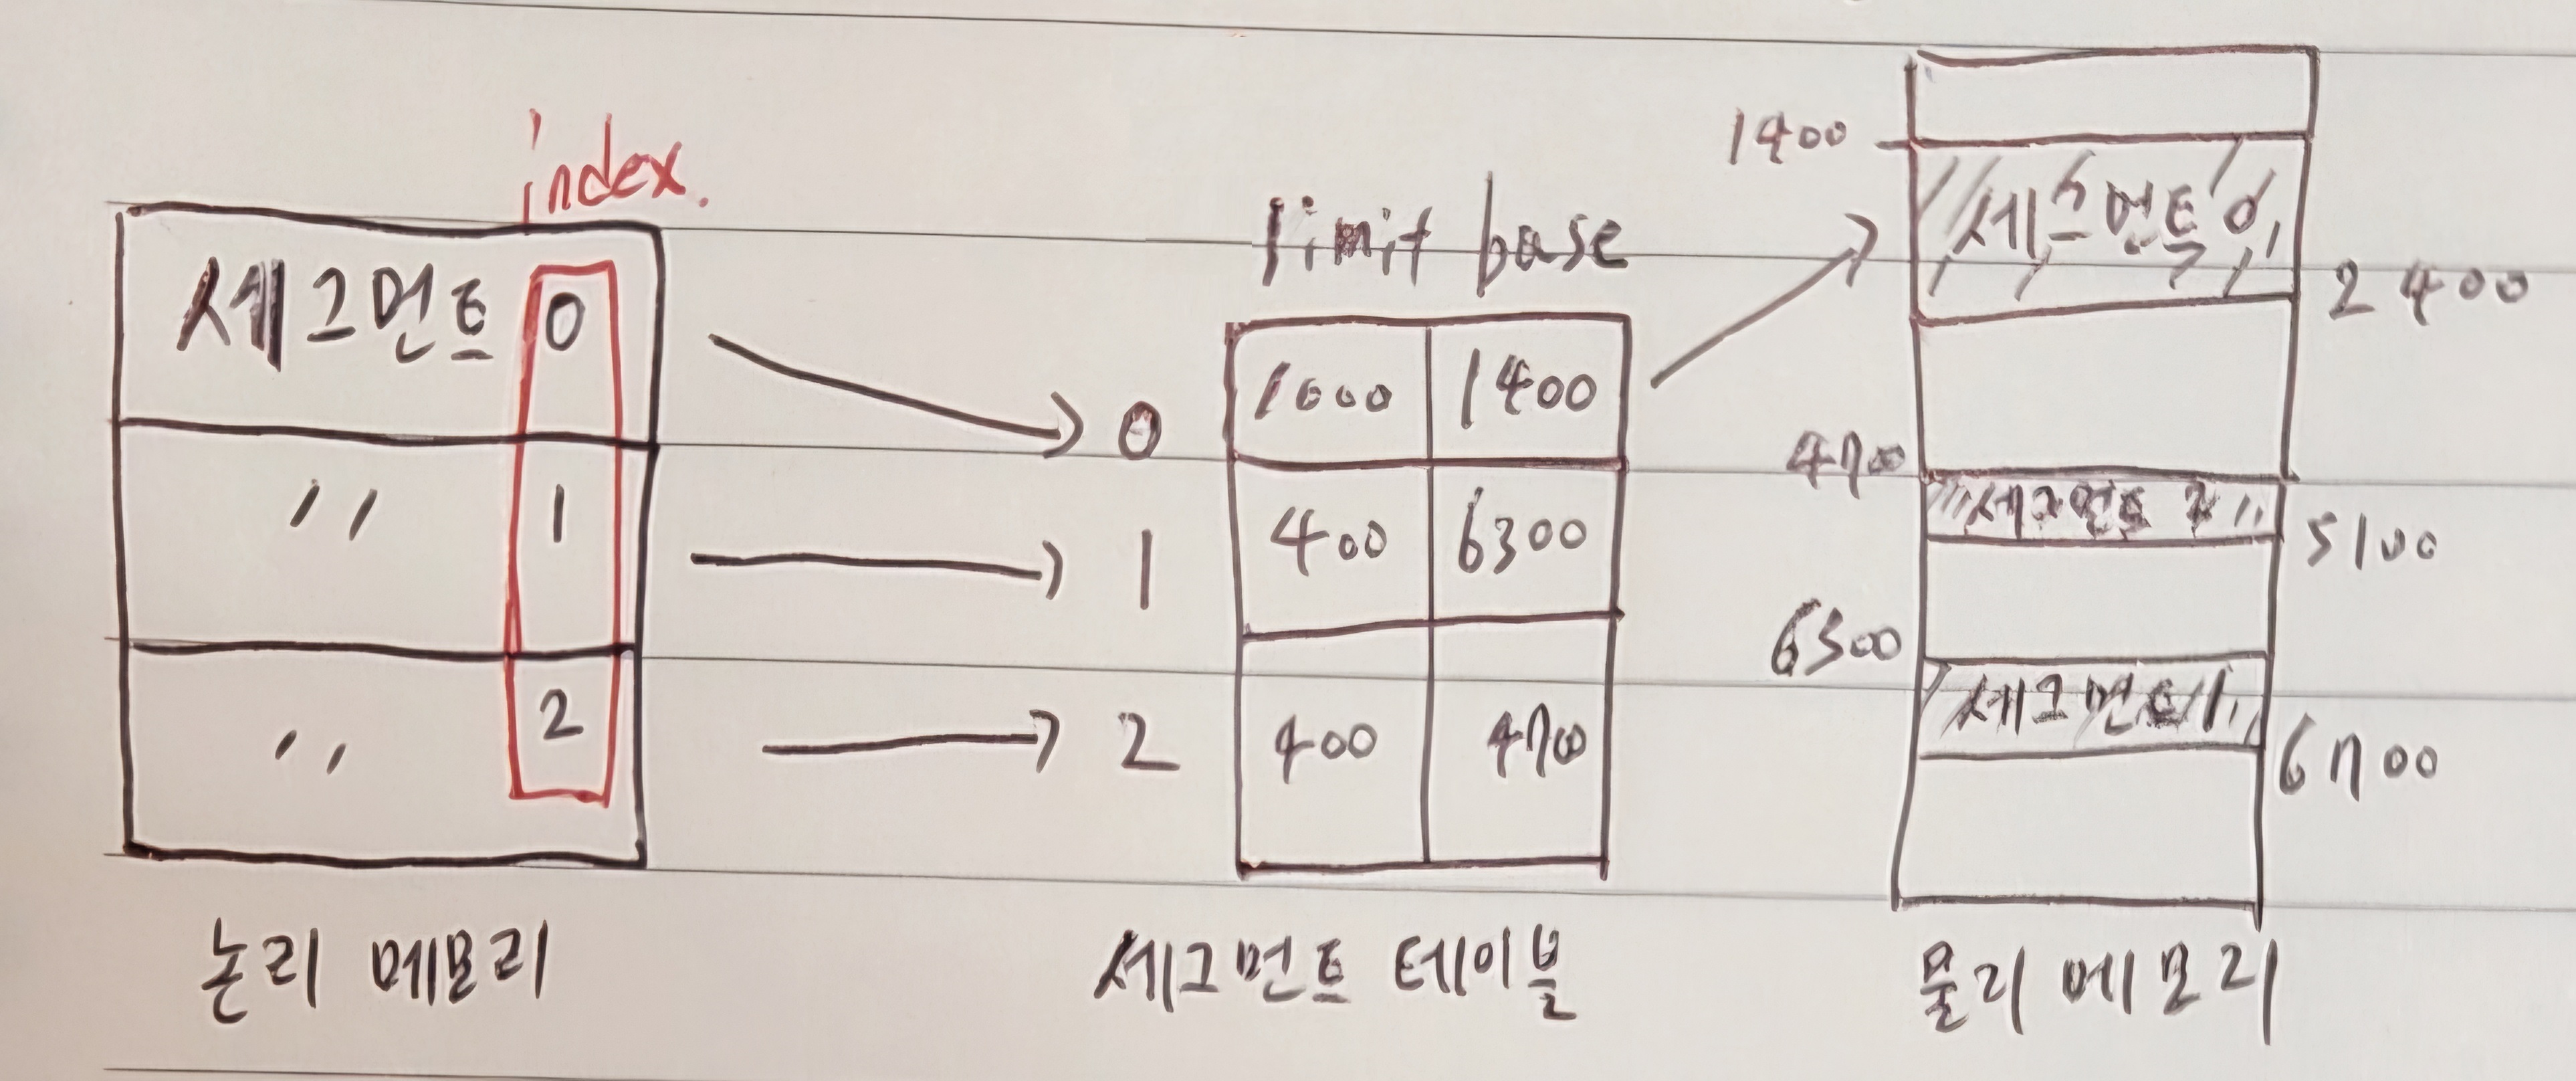 index.
세그먼트 0
〃 1
〃 2
논리 메모리
limit base
0 1000 1400
1 400 6300
2 400 4700
세그먼트 테이블
1400
세그먼트 0
2400
4700
세그먼트 2
5100
6300
세그먼트 1
6700
물리 메모리